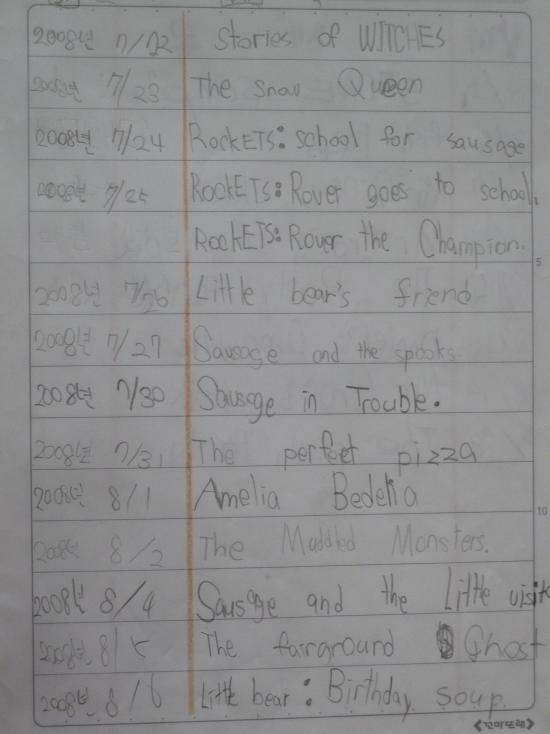 2008년 7/22 Stories of WITCHES
2008년 7/23 The Snow Queen
2008년 7/24 RockETS: school for sausage
2008년 7/25 RockETS: Rover goes to school.
RockETS: Rover the Champion.
5
2008년 7/26 Little bear's friend
2008년 7/27 Sausage and the spooks
2008년 7/30 Sausage in Trouble.
2008년 7/31 The perfect pizza
2008년 8/1 Amelia Bedelia
10
2008년 8/2 The Muddled Monsters.
2008년 8/4 Sausage and the Little visit
2008년 8/5 The fairground Ghost
2008년 8/6 Little bear: Birthday soup.
<꼬마또래>